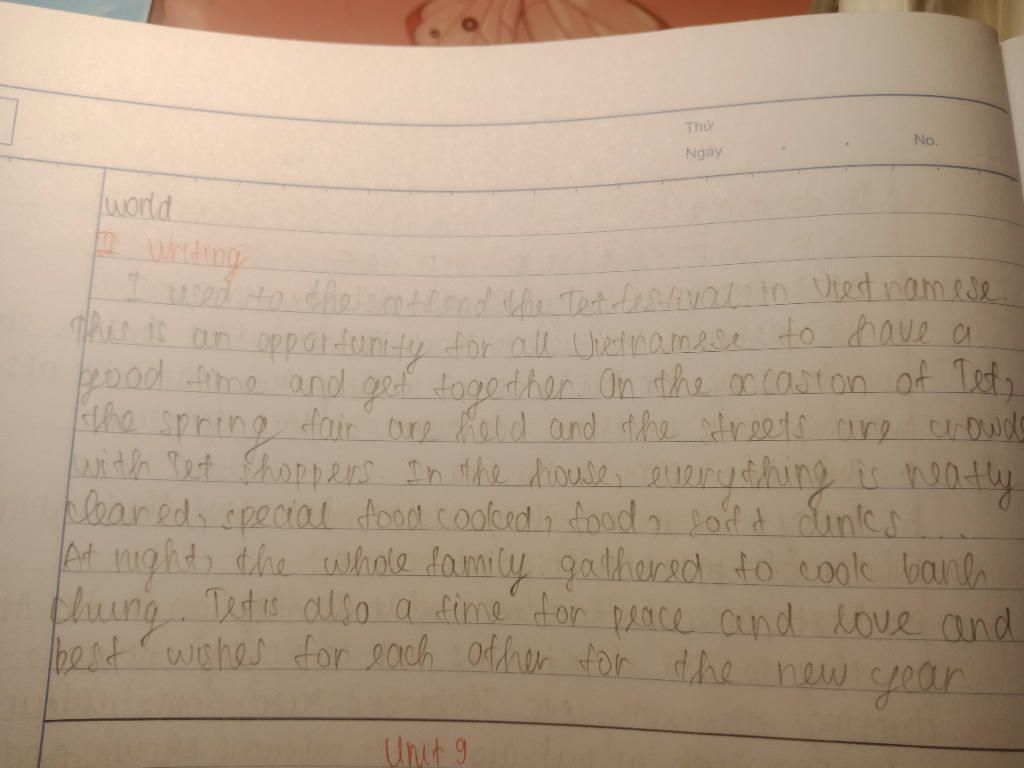 Thứ
Ngày
No.
world
II Writing
I used to the attend the Tet festival in Vietnamese.
this is an opportunity for all Vietnamese to have a
good time and get together. On the occasion of Tet,
the spring fair are held and the streets are crowds
with Tet shoppers. In the house, everything is neatly
cleaned, special food cooked, food, soft dinks ...
At night, the whole family gathered to cook banh
chung. Tet is also a time for peace and love and
best wishes for each other for the new year
Unit 9